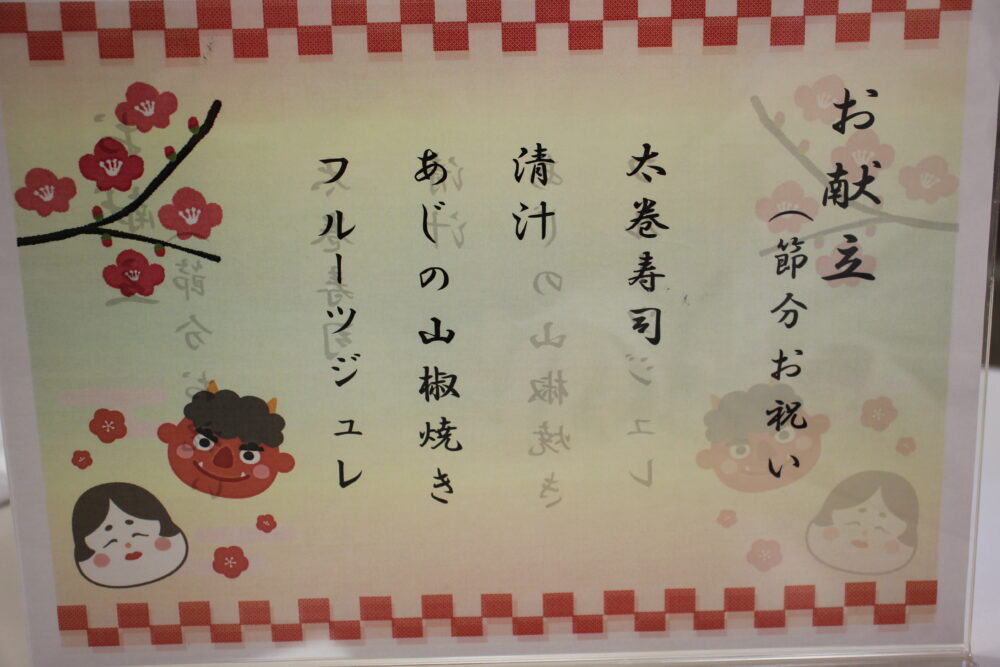 お献立
（節分お祝い
太巻寿司
清汁
あじの山椒焼き
フルーツジュレ